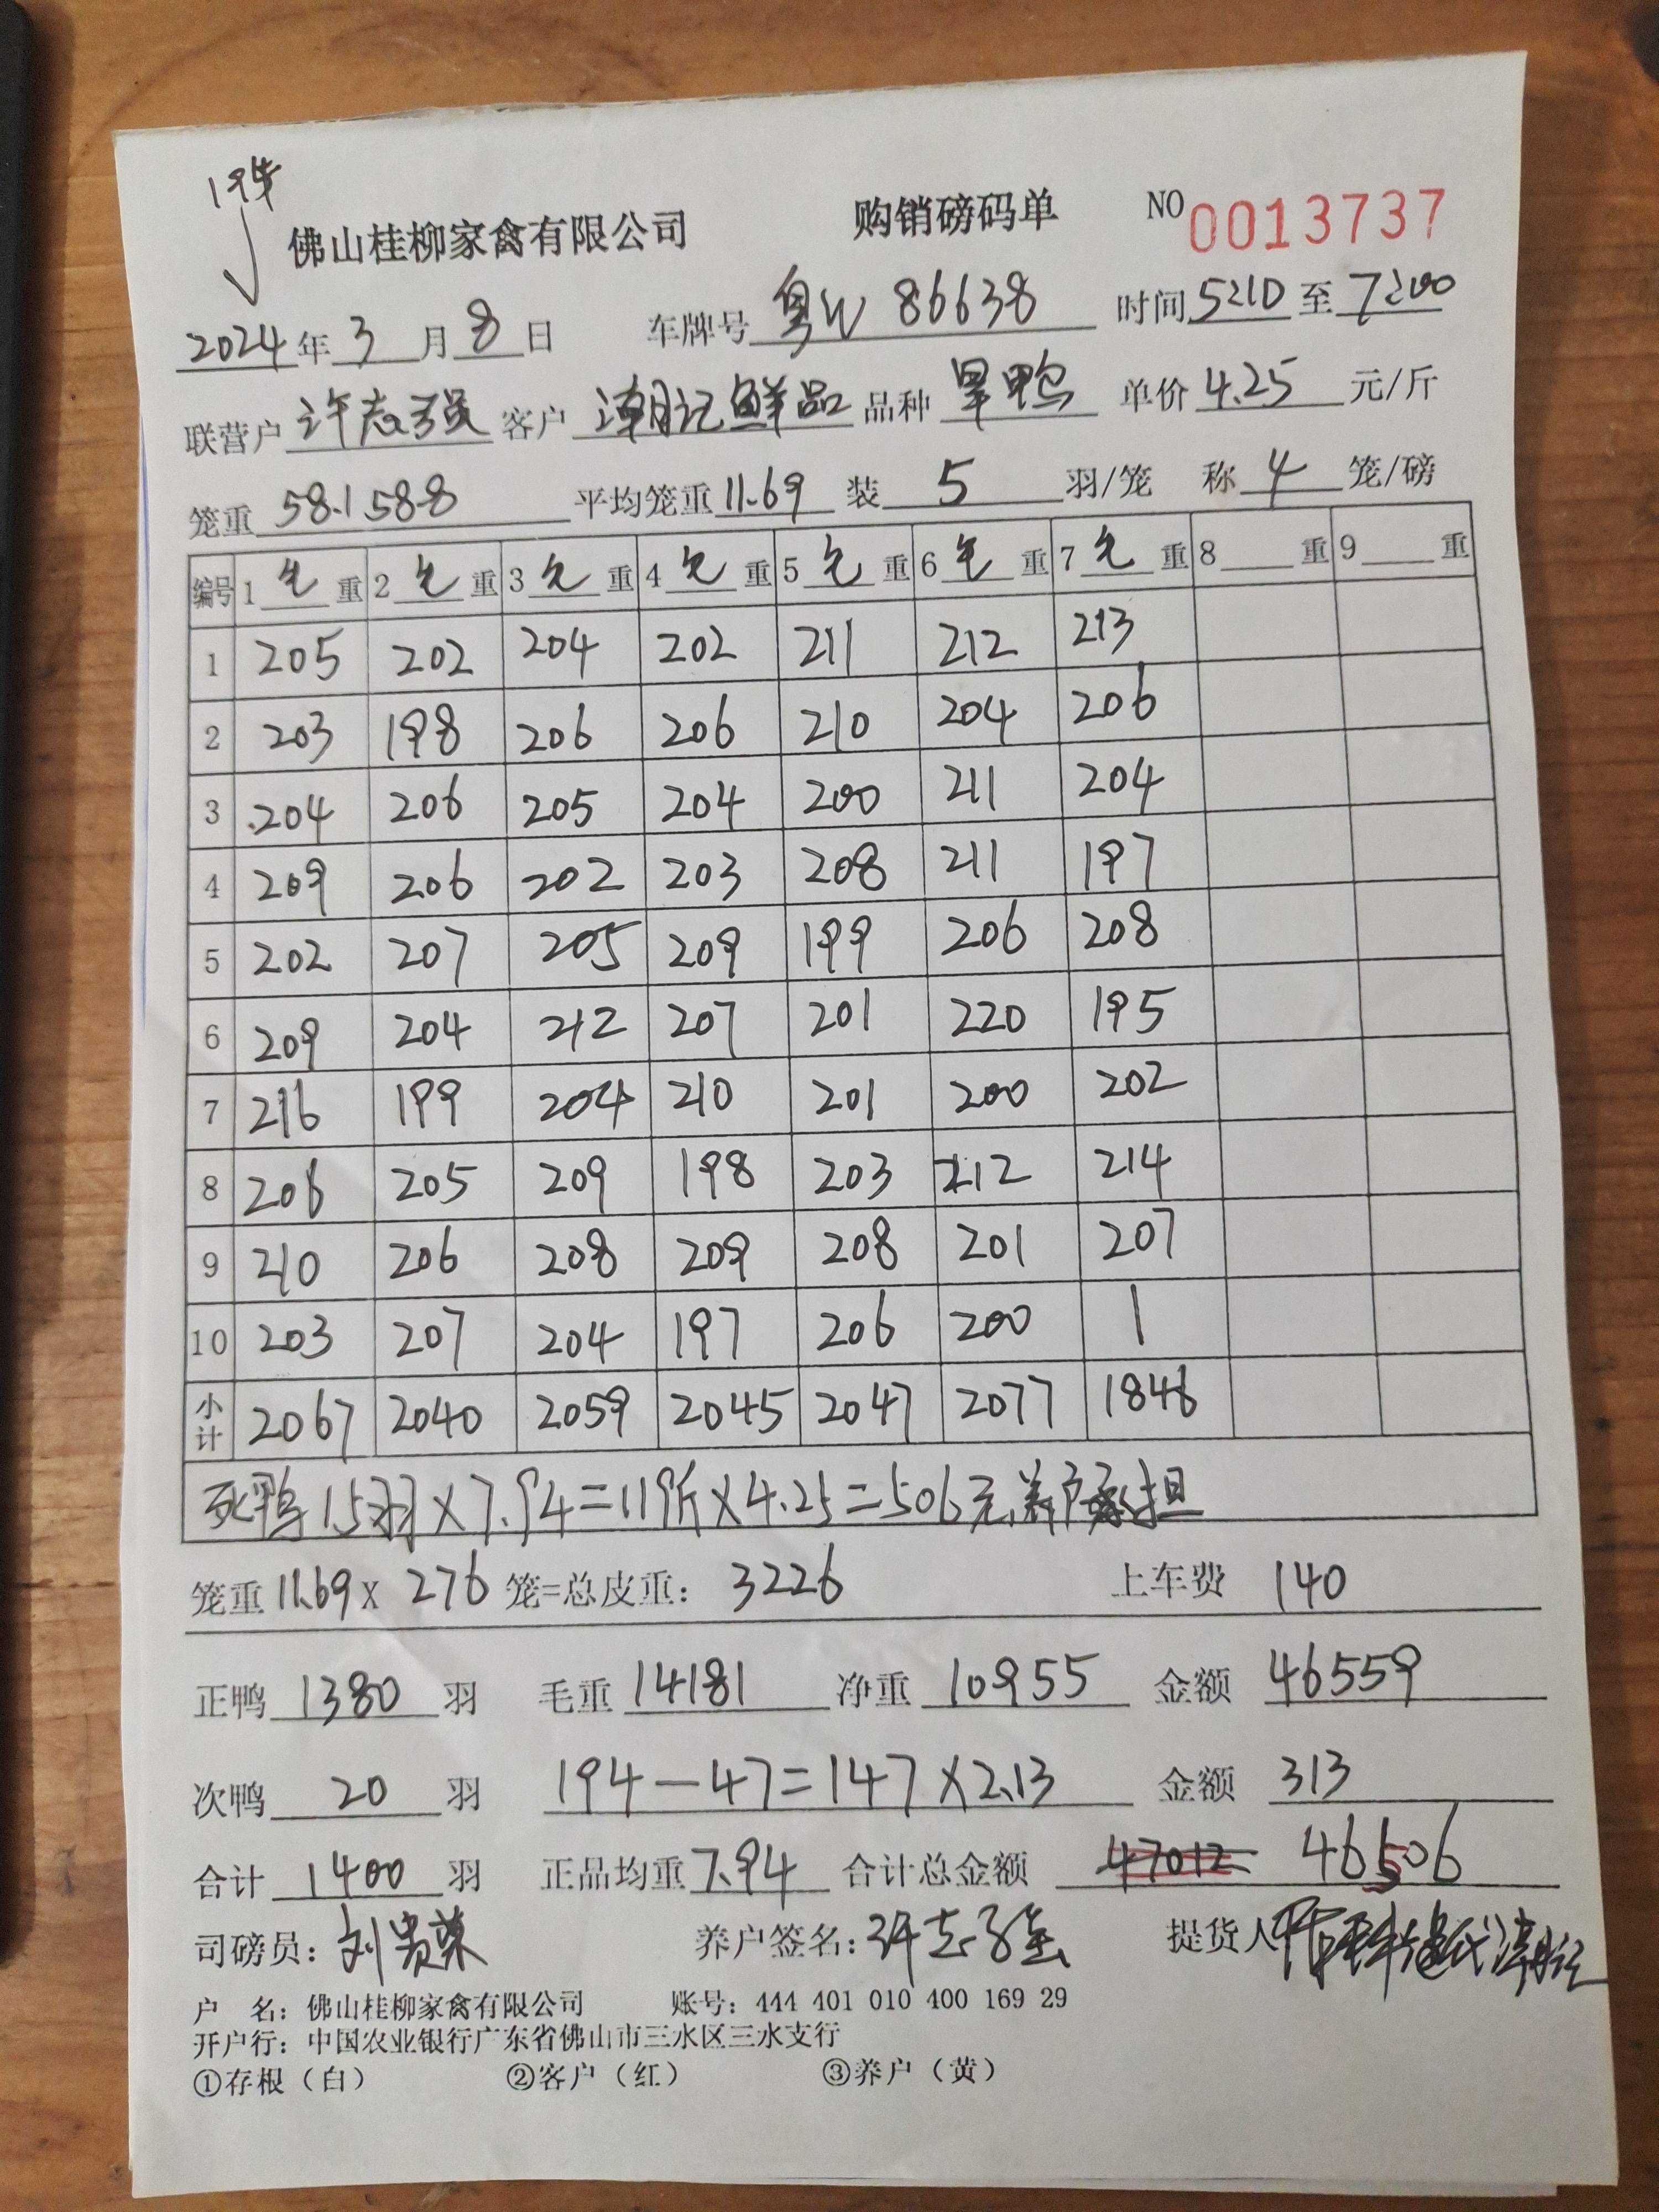 佛山桂柳家禽有限公司 购销磅码单 NO 0013737
2024年3月8日 车牌号 粤W 86638 时间5:10至7:00
联营户 许志强 客户 潮记鲜品 品种 旱鸭 单价4.25元/斤
笼重 58.1 58.8 平均笼重11.69 装5羽/笼 称4笼/磅
编号 1毛重 2毛重 3毛重 4毛重 5毛重 6毛重 7毛重 8重 9重
1 205 202 204 202 211 212 213
2 203 198 206 206 210 204 206
3 204 206 205 204 200 211 204
4 209 206 202 203 208 211 197
5 202 207 205 209 199 206 208
6 209 204 212 207 201 220 195
7 216 199 204 210 201 200 202
8 206 205 209 198 203 212 214
9 210 206 208 209 208 201 207
10 203 207 204 197 206 200 1
小计 2067 2040 2059 2045 2047 2077 1846
死鸭15羽×7.94=119斤×4.25=506元,养户承担
笼重11.69x 276笼=总皮重: 3226 上车费 140
正鸭 1380 羽 毛重 14181 净重 10955 金额 46559
次鸭 20 羽 194-47=147×2.13 金额 313
合计 1400 羽 正品均重 7.94 合计总金额 47012 46506
司磅员: 刘贵荣 养户签名: 许志强 提货人
户 名: 佛山桂柳家禽有限公司 账号: 444 401 010 400 169 29
开户行: 中国农业银行广东省佛山市三水区三水支行
①存根(白) ②客户(红) ③养户(黄)